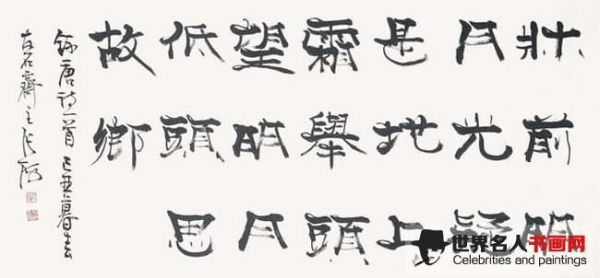 牀前明
月光疑
是地上
霜舉頭
望明月
低頭思
故鄉
錄唐詩一首
石齋主
世界名人书画网
Celebrities and paintings